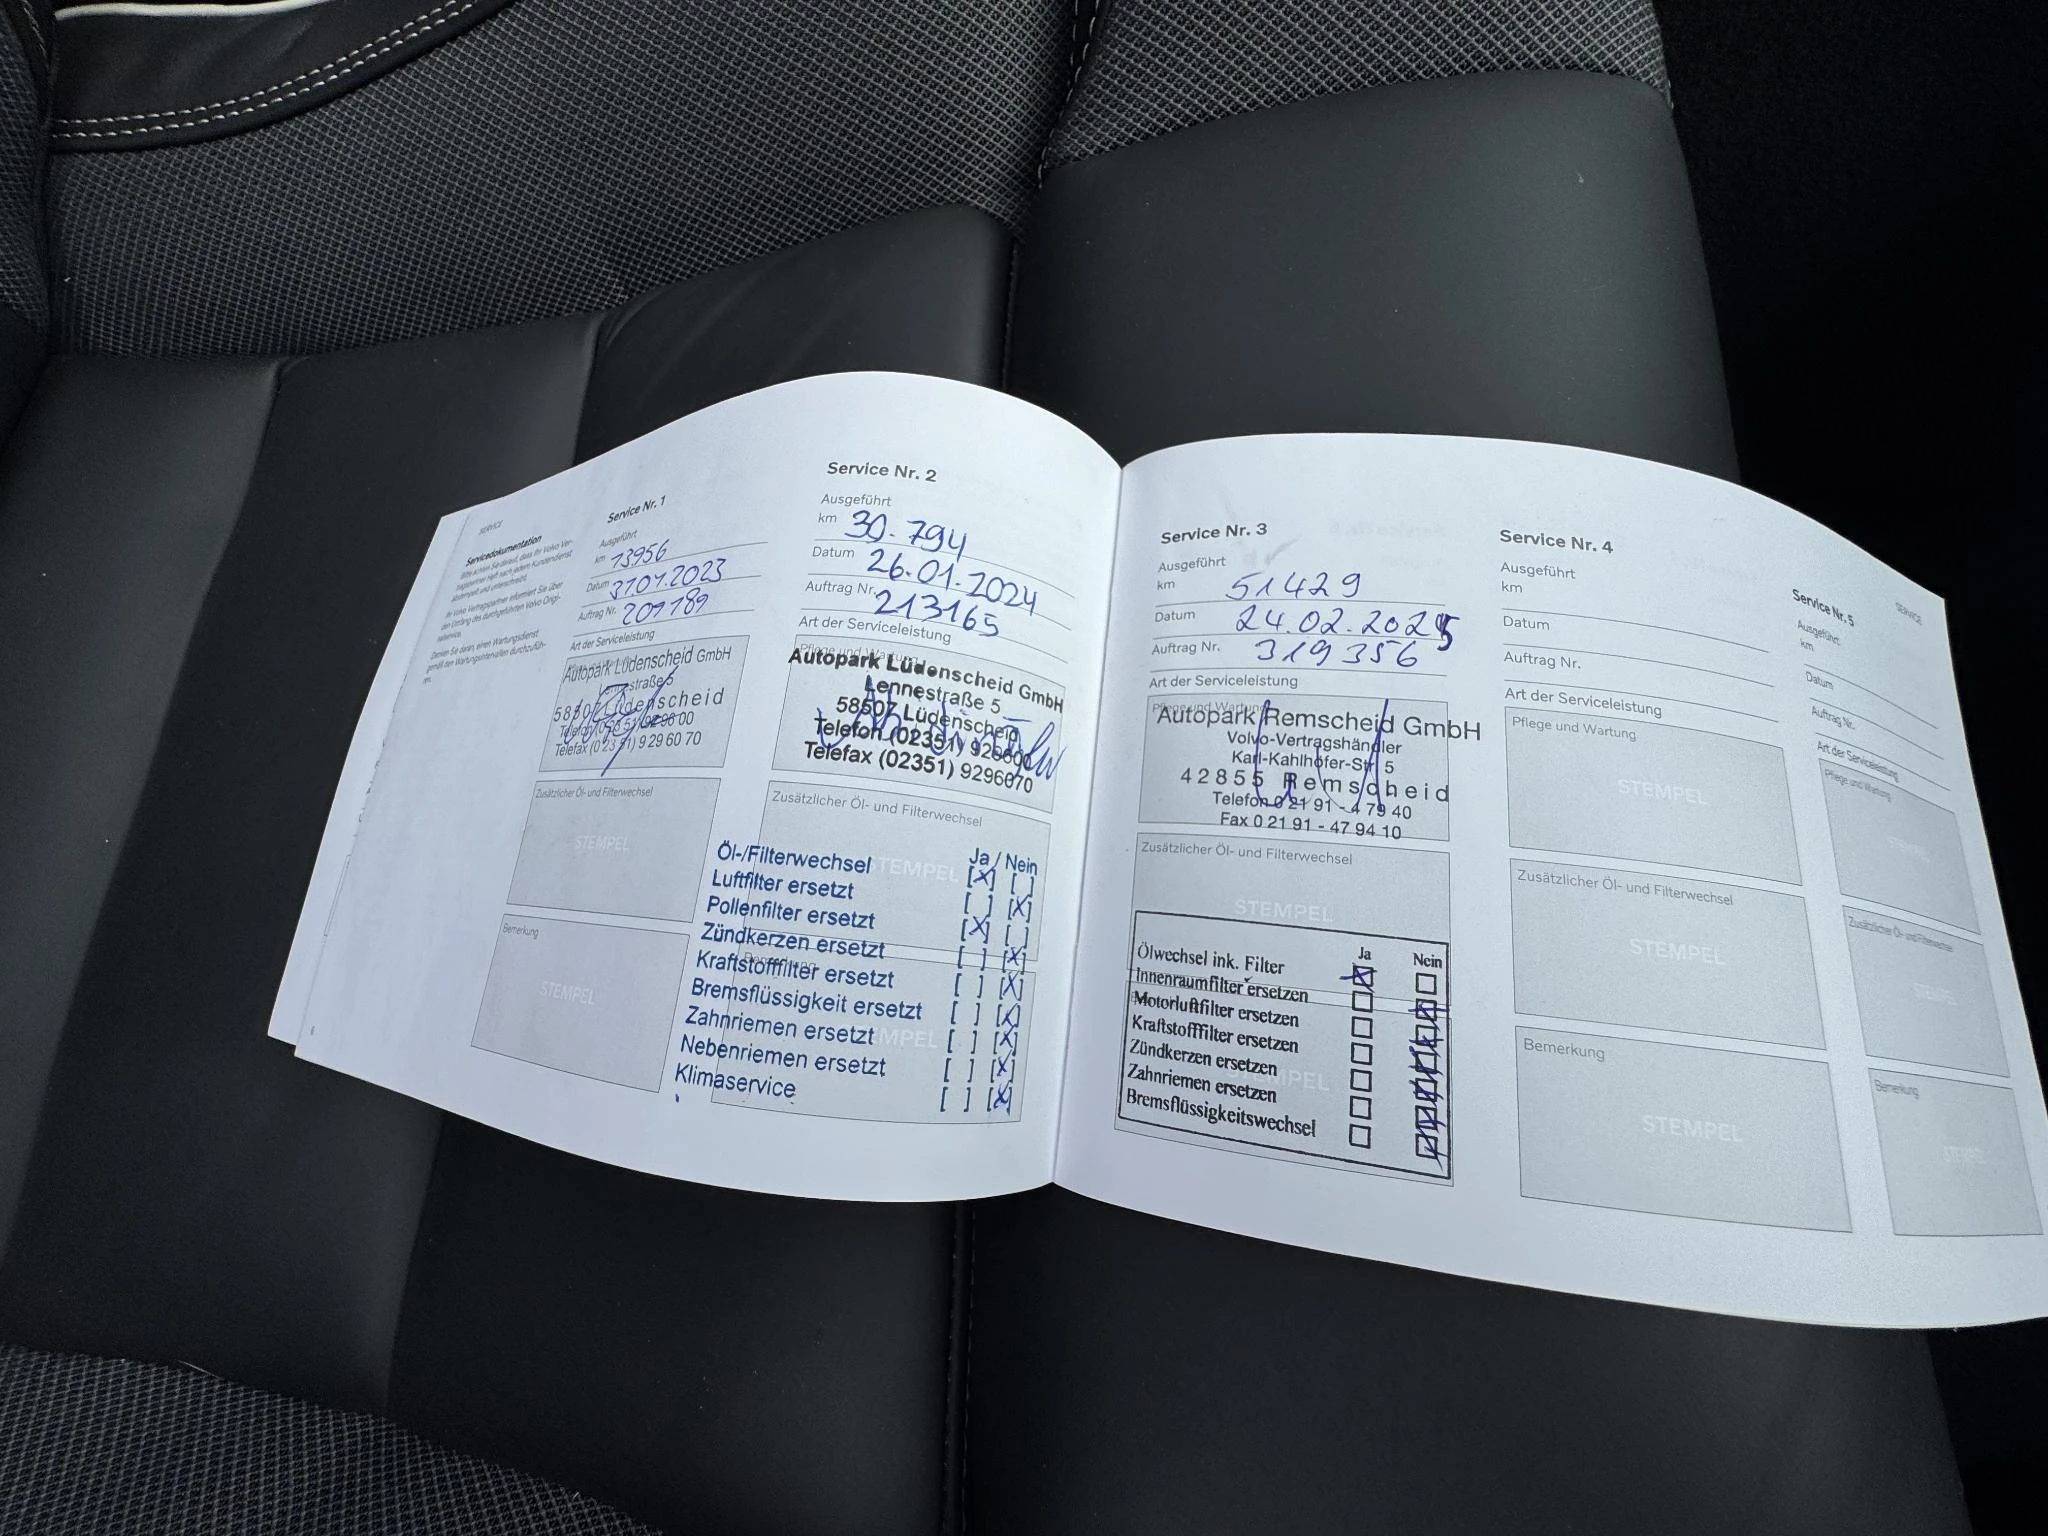 SERVICE
Servicedokumentation
Bitte achten Sie darauf, dass Ihr Volvo Ver-
tragspartner Heft nach jedem Kundendienst
abstempelt und unterschreibt.
Ihr Volvo Vertragspartner informiert Sie über
den Umfang des durchgeführten Volvo Origi-
nalservice.
Denken Sie daran, einen Wartungsdienst
gemäß den Wartungsintervallen durchzufüh-
ren.
Service Nr. 1
Ausgeführt
km 13956
Datum 31.01.2023
Auftrag Nr. 201189
Art der Serviceleistung
Autopark Lüdenscheid GmbH
Lennestraße 5
58507 Lüdenscheid
Telefon (02351) 92 96 00
Telefax (02351) 9 29 60 70
Zusätzlicher Öl- und Filterwechsel
STEMPEL
Bemerkung
STEMPEL
Service Nr. 2
Ausgeführt
km 30.794
Datum 26.01.2024
Auftrag Nr. 213165
Art der Serviceleistung
Pflege und Wartung
Autopark Lüdenscheid GmbH
Lennestraße 5
58507 Lüdenscheid
Telefon (02351) 929600
Telefax (02351) 9296070
Zusätzlicher Öl- und Filterwechsel
STEMPEL
Ja / Nein
Öl-/Filterwechsel [X] [ ]
Luftfilter ersetzt [ ] [X]
Pollenfilter ersetzt [X] [ ]
Zündkerzen ersetzt [ ] [X]
Kraftstofffilter ersetzt [ ] [X]
Bremsflüssigkeit ersetzt [ ] [X]
Zahnriemen ersetzt [ ] [X]
Nebenriemen ersetzt [ ] [X]
Klimaservice [ ] [X]
Service Nr. 3
Ausgeführt
km 51429
Datum 24.02.2025
Auftrag Nr. 319356
Art der Serviceleistung
Pflege und Wartung
Autopark Remscheid GmbH
Volvo-Vertragshändler
Karl-Kahlhöfer-Str. 5
42855 Remscheid
Telefon 0 21 91 - 4 79 40
Fax 0 21 91 - 47 94 10
Zusätzlicher Öl- und Filterwechsel
STEMPEL
Ja Nein
Ölwechsel ink. Filter
Innenraumfilter ersetzen
Motorluftfilter ersetzen
Kraftstofffilter ersetzen
Zündkerzen ersetzen
Zahnriemen ersetzen
Bremsflüssigkeitswechsel
STEMPEL
Service Nr. 4
Ausgeführt
km
Datum
Auftrag Nr.
Art der Serviceleistung
Pflege und Wartung
STEMPEL
Zusätzlicher Öl- und Filterwechsel
STEMPEL
Bemerkung
STEMPEL
SERVICE
Service Nr. 5
Ausgeführt
km
Datum
Auftrag Nr.
Art der Serviceleistung
Pflege und Wartung
STEMPEL
Zusätzlicher Öl- und Filterwechsel
STEMPEL
Bemerkung
STEMPEL
6